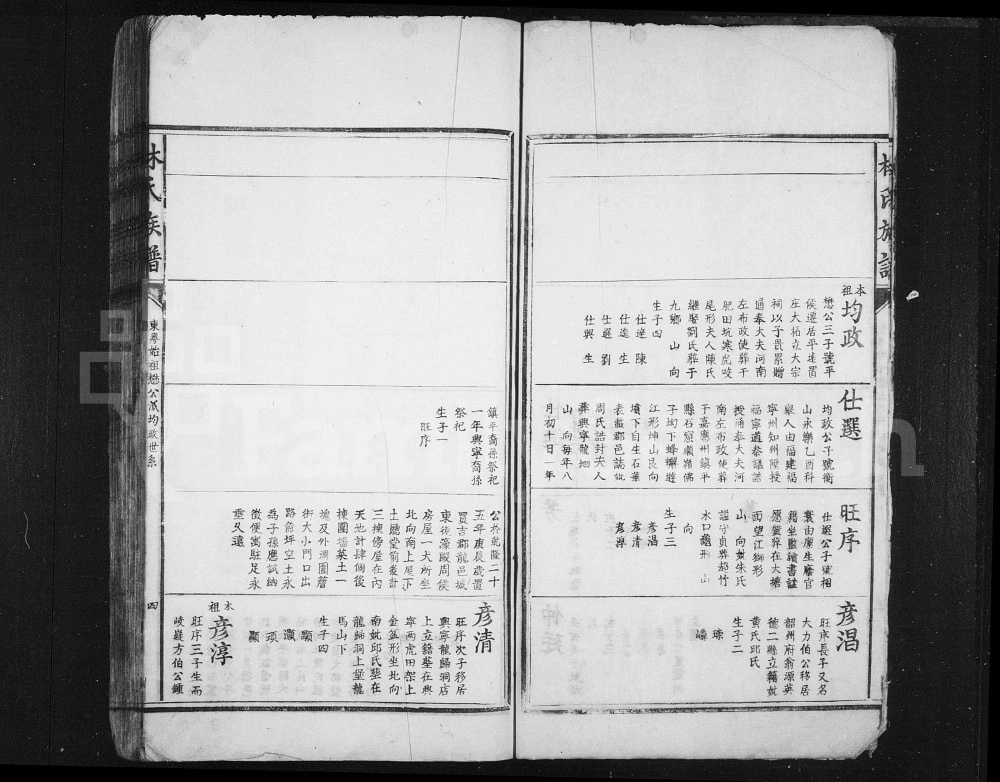 林氏族譜
本祖
均政
懋公三子號平
侯遷居平遠置
庄大柘立大宗
祠以子貴累贈
通奉大夫河南
左布政使葬于
肥田坑寒虎咬
尾形夫人陳氏
繼娶劉氏葬于
九鄉 山 向
生子四
仕達 陳
仕遠 生
仕選 劉
仕興 生
仕選
均政公子號衡
山永樂乙酉科
舉人由福建福
寧州知州陞授
福寧道泰議誥
授通奉大夫河
南左布政使葬
于嘉應州鎮平
縣石窟顯嶺佛
子坳下蜂蟬迸
江形坤山艮向
墳下自生石華
表載郡邑誌妣
周氏誥封夫人
葬興寧龍坳
山 向每年八
月初十日一年
鎮平裔孫祭祀
一年興寧裔孫
祭祀
生子一
旺序
旺序
仕選公子號相
寰由廩生廕官
籍坐監繪書註
歷鹽葬在大壩
面望江獅形
山 向妣朱氏
謚守貞葬菊竹
水口龜形 山
向
生子三
彥淐
彥清
彥淳
公於乾隆二十
五年庚辰歲置
買吉郡龍邑城
東後濠殿周侯
房屋一大所坐
北向南上屋下
土廳堂前後計
三棟傍屋在內
天池計肆個後
棟圍墻基土一
塊及外湖園唇
街大小門口出
路餘坪空土永
為子孫應試納
徵便寓駐足永
垂久遠
彥淐
旺序長子又名
大力伯公移居
韶州府翁源英
德二縣立籍妣
黃氏邱氏
生子二
瑧
嶙
彥清
旺序次子移居
興寧龍歸洞店
上立籍墓在興
寧兩虎田架上
金盆形坐北向
南妣邱氏墓在
龍歸洞上堂龍
馬山下
生子四
顯
灝
頊
顯
本祖
彥淳
旺序三子生而
岐嶷方伯公鍾
林氏族譜
東粵始祖懋公派均政世系
四